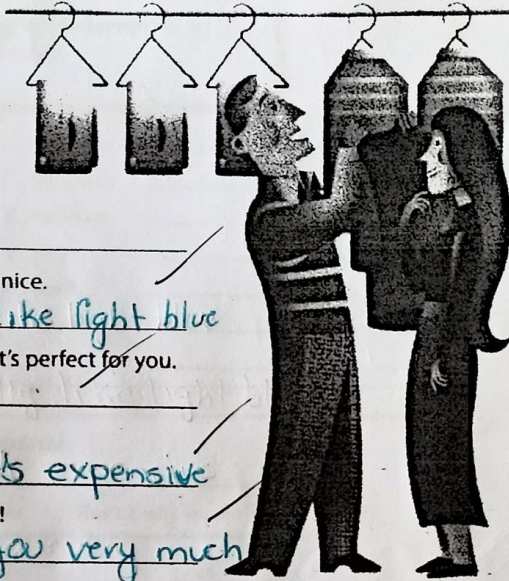 nice.
like light blue
t's perfect for you.
s expensive
!
you very much